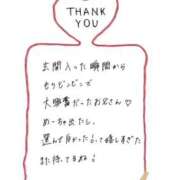 THANK
YOU
玄関入った瞬間から
もりビンビンで
大興奮だったお兄さん♡
めーちゃ出たし、
選んで良かったって嬉しすぎた
また待ってるね！